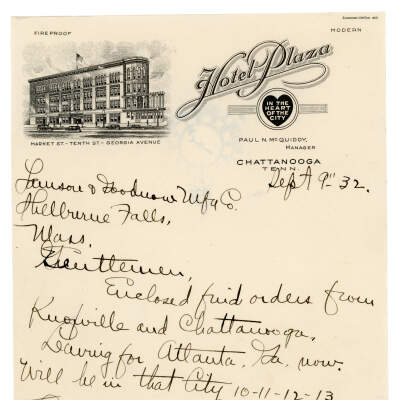 FIREPROOF
MODERN
Hotel Plaza
IN THE
HEART
OF THE
CITY
MARKET ST. - TENTH ST. - GEORGIA AVENUE
PAUL N. McQUIDDY,
MANAGER
CHATTANOOGA
TENN.
Sept 9" 32.
Lamson & Goodnow Mfg Co.
Shelburne Falls,
Mass.
Gentlemen,
Enclosed find orders from
Knoxville and Chattanooga,
Leaving for Atlanta, Ga. now.
Will be in that City 10-11-12-13